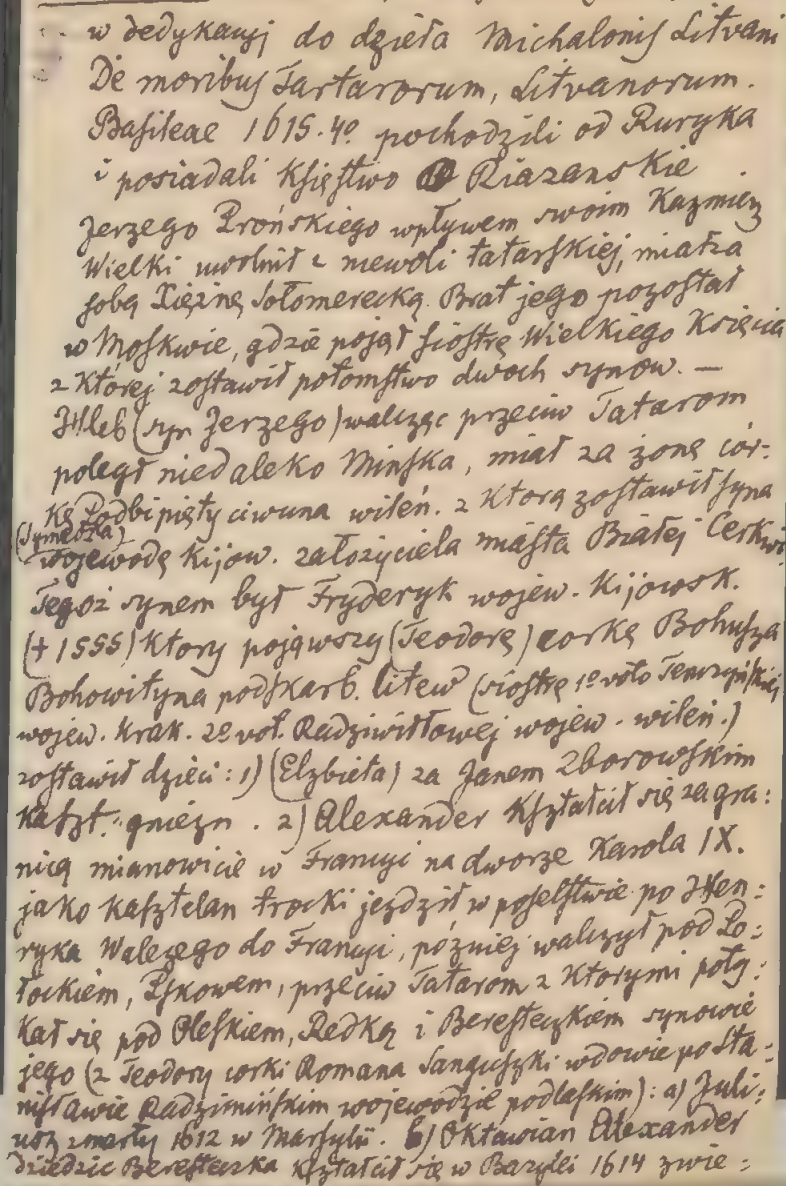 w dedykacyj do dzieła Michalonis Litvani
De moribus Tartarorum, Litvanorum.
Basileae 1615. 4º pochodzili od Ruryka
i posiadali Księstwo Riazanskie
Jerzego Prońskiego wpływem swoim Kazmierz
Wielki uwolnił z niewoli tatarskiej, miał za
sobą Xiężnę Sołomerecką. Brat jego pozostał
w Moskwie, gdzie pojął siostrę Wielkiego Księcia
z której zostawił potomstwo dwoch synow. —
Hleb (syn Jerzego) walcząc przeciw Tatarom
poległ niedaleko Mińska, miał za żonę cór-
kę Podbipięty ciwuna wileń. z ktorą zostawił syna
(Symeona)
wojewodę Kijow. założyciela miasta Białej Cerkwi
Tegoż synem był Fryderyk wojew. Kijowsk.
(+ 1555) Ktory pojąwszy (Teodorę) corkę Bohusza
Bohowityna podskarb. litew (siostrę 1º voto Tenczyńskiej
wojew. Krak. 2º vot. Radziwiłłowej wojew. wileń.)
zostawił dzieci: 1) (Elzbieta) za Janem Zborowskim
kaszt. gniezn. 2) Alexander Kształcił się zagra:
nicą mianowicie w Francyi na dworze Karola IX.
jako kasztelan trocki jezdził w poselstwie po Hen:
ryka Walezego do Francyi, później walczył pod Po:
łockiem, Pskowem, przeciw Tatarom z Ktorymi poty:
Kał się pod Oleskiem, Redką i Beresteczkiem synowie
jego (z Teodory corki Romana Sanguszki wdowie po Sta:
nisławie Radzimińskim wojewodzie podlaskim): a) Juli:
usz zmarły 1612 w Marsylii. b) Oktawian Alexander
dziedzic Beresteczka kształcił się w Bazylei 1614 zwie: